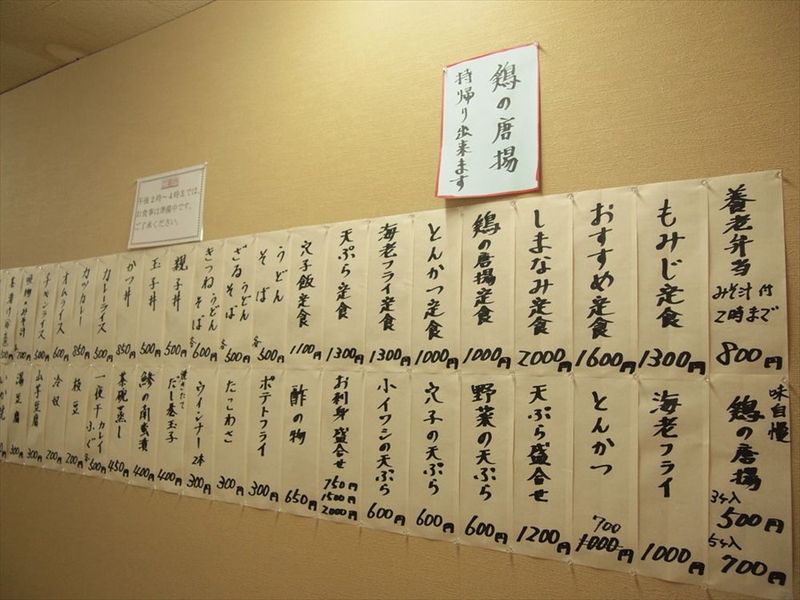 鶏の唐揚
持帰り出来ます
午後2時～4時までは、
お食事は準備中です。
ご了承ください。
養老弁当
みそ汁付
2時まで
800円
もみじ定食
1300円
おすすめ定食
1600円
しまなみ定食
2000円
鶏の唐揚定食
1000円
とんかつ定食
1000円
海老フライ定食
1300円
天ぷら定食
1300円
穴子飯定食
1100円
うどん
そば
各500円
ざるうどん
そば
各500円
きつねうどん
そば
各600円
親子丼
500円
玉子丼
500円
かつ丼
850円
カレーライス
500円
カツカレー
850円
オムライス
600円
チキンライス
500円
味自慢
鶏の唐揚
3ケ入
500円
5ケ入
700円
海老フライ
1000円
とんかつ
700
1000円
天ぷら盛合せ
1200円
野菜の天ぷら
600円
穴子の天ぷら
600円
小イワシの天ぷら
600円
お刺身盛合せ
750円
1500円
2000円
酢の物
650円
ポテトフライ
300円
たこわさ
300円
ウインナー2本
300円
焼きたて
だし巻玉子
400円
鯵の南蛮漬
400円
茶碗蒸し
450円
一夜干カレイ
ふぐ
各500円
枝豆
200円
冷奴
200円
山芋豆腐
300円
湯豆腐
300円